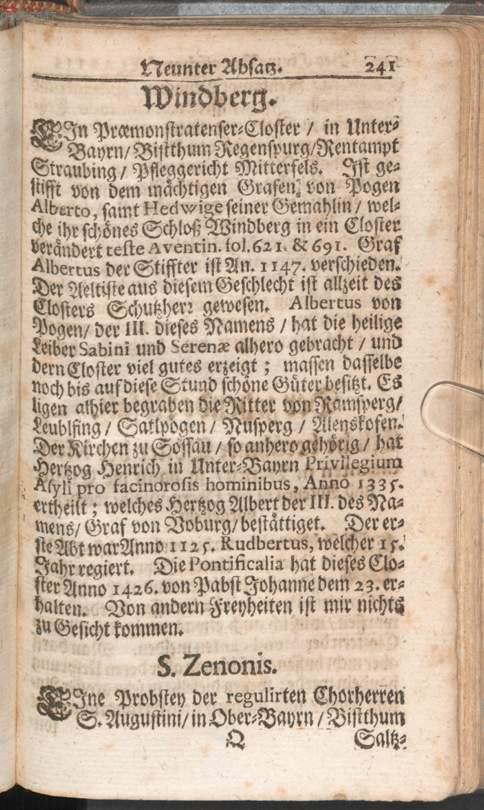 Neunter Absatz. 241
Windberg.
EIn Præmonstratenser-Closter / in Unter-
Bayrn / Bistthum Regenspurg / Rentampt
Straubing / Pfleggericht Mitterfels. Ist ge-
stifft von dem mächtigen Grafen von Pogen
Alberto, samt Hedwige seiner Gemahlin / wel-
che ihr schönes Schloß Windberg in ein Closter
verändert teste Aventin. fol. 621. & 691. Graf
Albertus der Stiffter ist An. 1147. verschieden.
Der Aeltiste aus diesem Geschlecht ist allzeit des
Closters Schutzherr gewesen. Albertus von
Pogen / der III. dieses Namens / hat die heilige
Leiber Sabini und Serenæ alhero gebracht / und
dern Closter viel gutes erzeigt ; massen dasselbe
noch bis auf diese Stund schöne Güter besitzt. Es
ligen alhier begraben die Ritter von Ramsperg /
Leublfing / Satlpogen / Nusperg / Alenskofen.
Der Kirchen zu Sossau / so anhero gehörig / hat
Hertzog Henrich in Unter-Bayrn Privilegium
Asyli pro facinorosis hominibus, Anno 1335.
ertheilt ; welches Hertzog Albert der III. des Na-
mens / Graf von Voburg / bestättiget. Der er-
ste Abt war Anno 1125. Rudbertus, welcher 15.
Jahr regiert. Die Pontificalia hat dieses Clo-
ster Anno 1426. von Pabst Johanne dem 23. er-
halten. Von andern Freyheiten ist mir nichts
zu Gesicht kommen.
S. Zenonis.
EIne Probstey der regulirten Chorherren
S. Augustini / in Ober-Bayrn / Bistthum
Q Saltz-